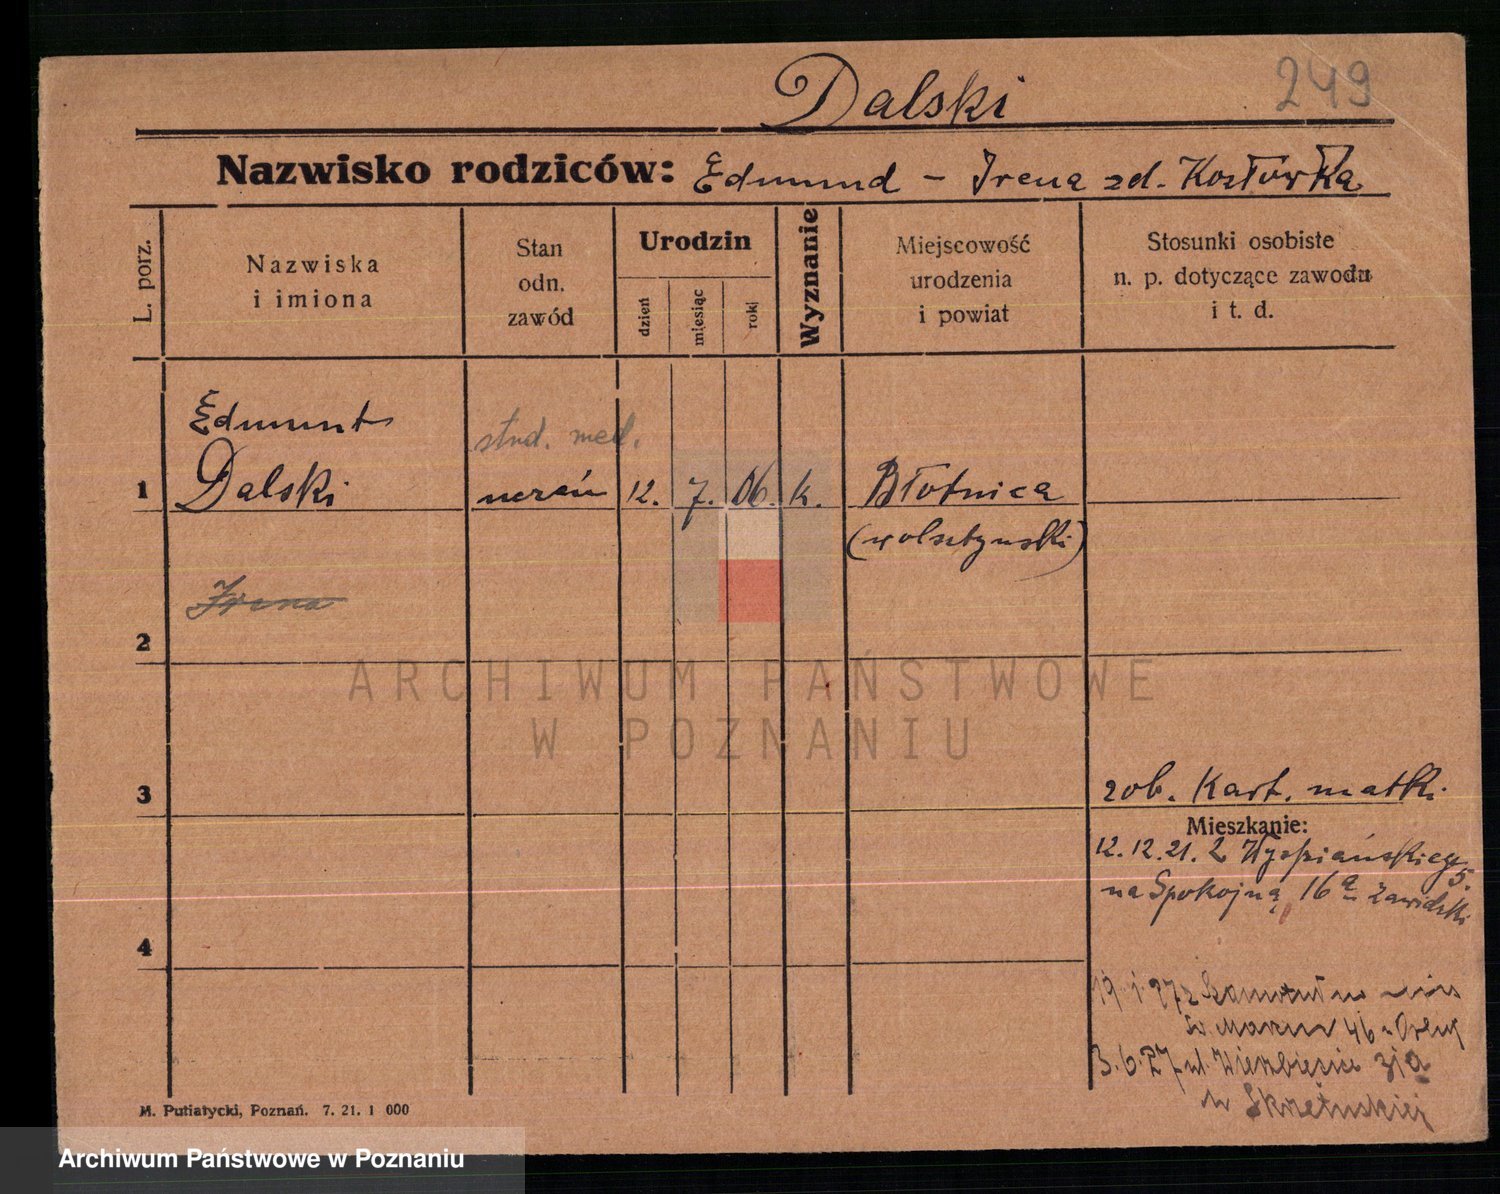 Dalski
249
Nazwisko rodziców: Edmund - Irena zd. Kozłowska
L. porz.
Nazwiska
i imiona
Stan
odn.
zawód
Urodzin
dzień
miesiąc
rok
Wyznanie
Miejscowość
urodzenia
i powiat
Stosunki osobiste
n. p. dotyczące zawodu
i t. d.
Edmunt
stud. med.
1 Dalski uczeń 12. 7. 06. k. Błotnica
(wolsztyński)
Irena
2
3
zob. Kart. matki.
Mieszkanie:
12.12.21. z Wyspiańskiego 5.
na Spokojną 16a Zawidzki
4
19.1.27 z
Św. Marcin 46
3.6.27 ul. Wierzbięcice 31a
Skrzetuskiej
M. Putiatycki, Poznań. 7. 21. 1 000
ARCHIWUM PAŃSTWOWE
W POZNANIU
Archiwum Państwowe w Poznaniu